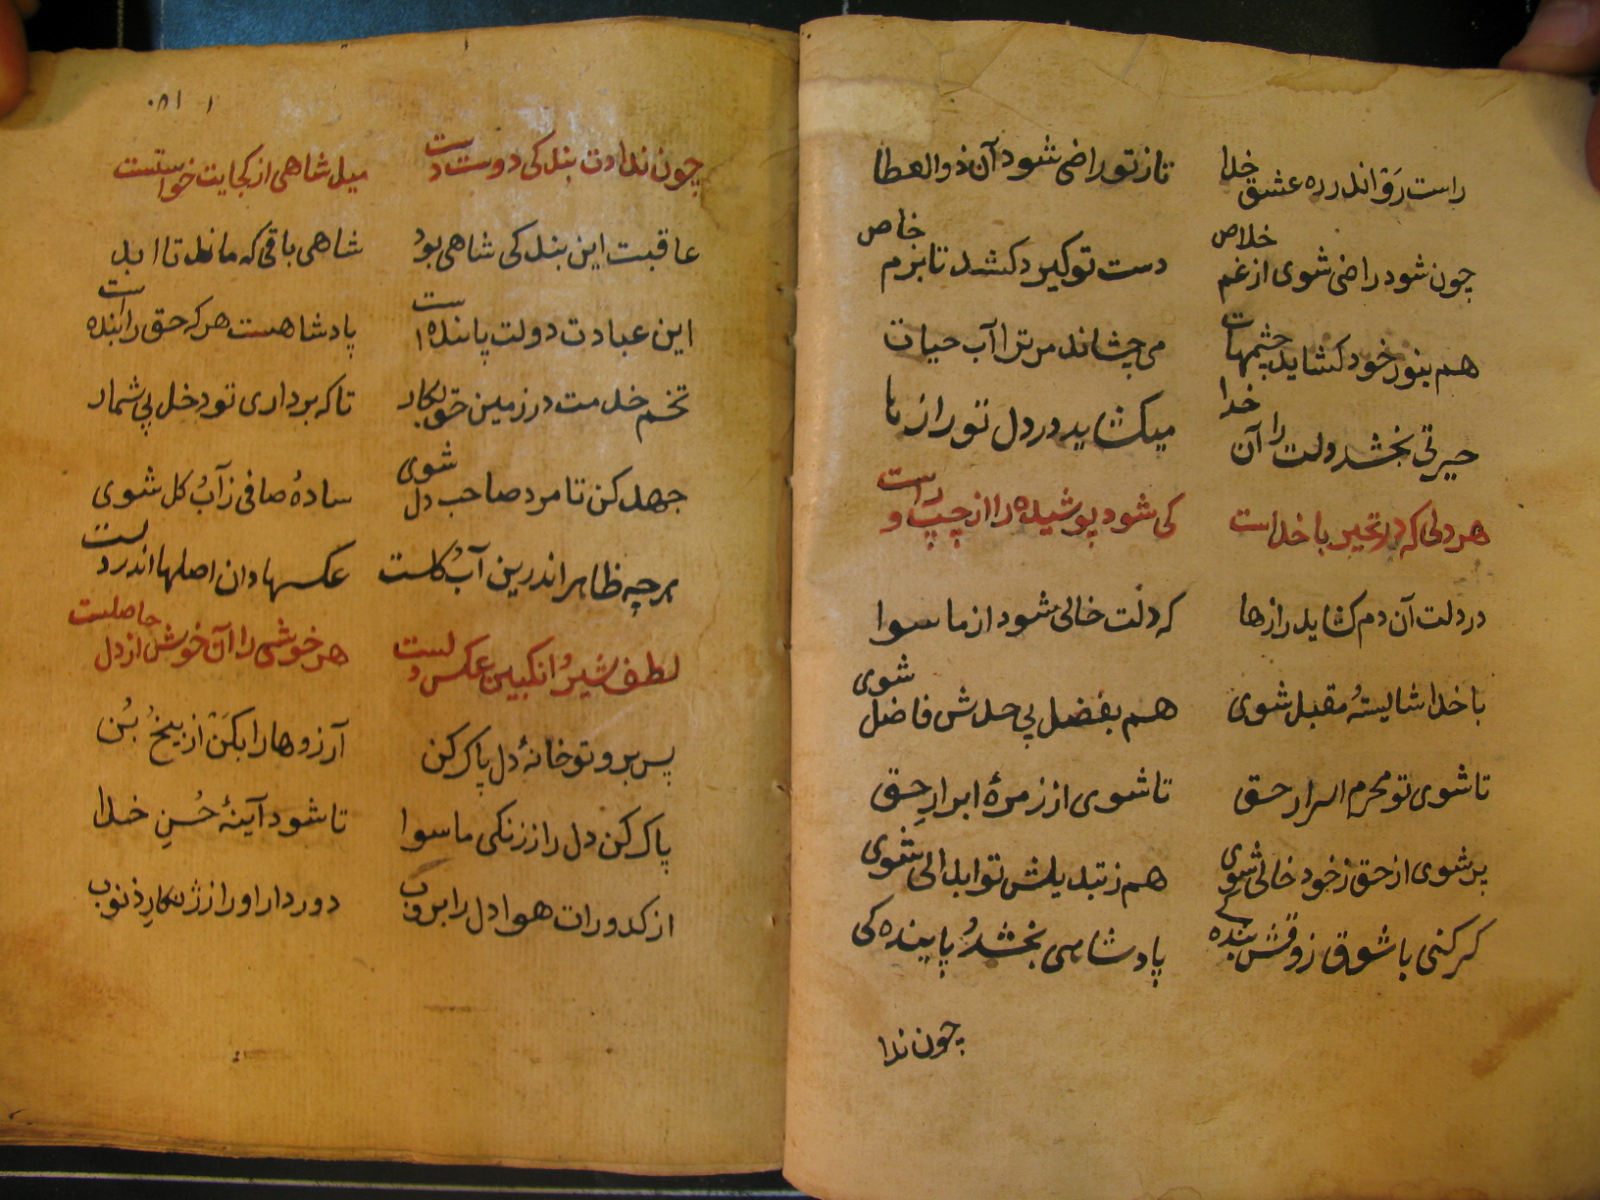 راست رَوْ اندر ره عشق خدا
تا ز تو راضی شود آن ذوالعطا
چون شود راضی شوی از غم خلاص
دست تو کیرد کشد تا بزم خاص
هم بنور خود کشاید چشمهات
می چشاند مر ترا آب حیات
حیرتی بخشد دلت را آن خدا
میکشاید در دل تو رازها
هر دلی که در تحیر با خداست
کی شود پوشیده را از چپ و راست
در دلت آن دم کشاید رازها
که دلت خالی شود از ماسوا
با خدا شایستهٔ مقبل شوی
هم بفضل بی حدش فاضل شوی
تا شوی تو محرم اسرار حق
تا شوی از زمرهٔ ابرارِ حق
پر شوی از حق ز خود خالی شوی
هم ز تبدیلش تو ابدالی شوی
کر کنی با شوق ذوقش بنده کی
پادشاهی بخشدُ پاینده کی
چون ندا
۱۵۸
چون ندادت بندکی دوست دست
میل شاهی از کجایت خواستست
عاقبت این بندکی شاهی بود
شاهی باقی که ماند تا ابد
این عبادت دولت پاینده است
پادشاهست هر که حق را بنده است
تخم خدمت در زمین حق بکار
تا که برداری تو دخل بی شمار
جهد کن تا مرد صاحب دل شوی
سادهٔ صافی ز آبُ کل شوی
هر چه ظاهر اندرین آبُ کلست
عکسها دان اصلها اندر دلست
لطف شیرُ انکبین عکس دلست
هر خوشی را آن خوش از دل حاصلست
پس برو تو خانهٔ دل پاک کن
آرزوها را بکَنْ از بیخُ بُن
پاک کن دل را ز زنکی ماسوا
تا شود آینهٔ حُسنِ خدا
از کدورات هوا دل را بروب
دور دار او را ز ژنکارِ ذنوب